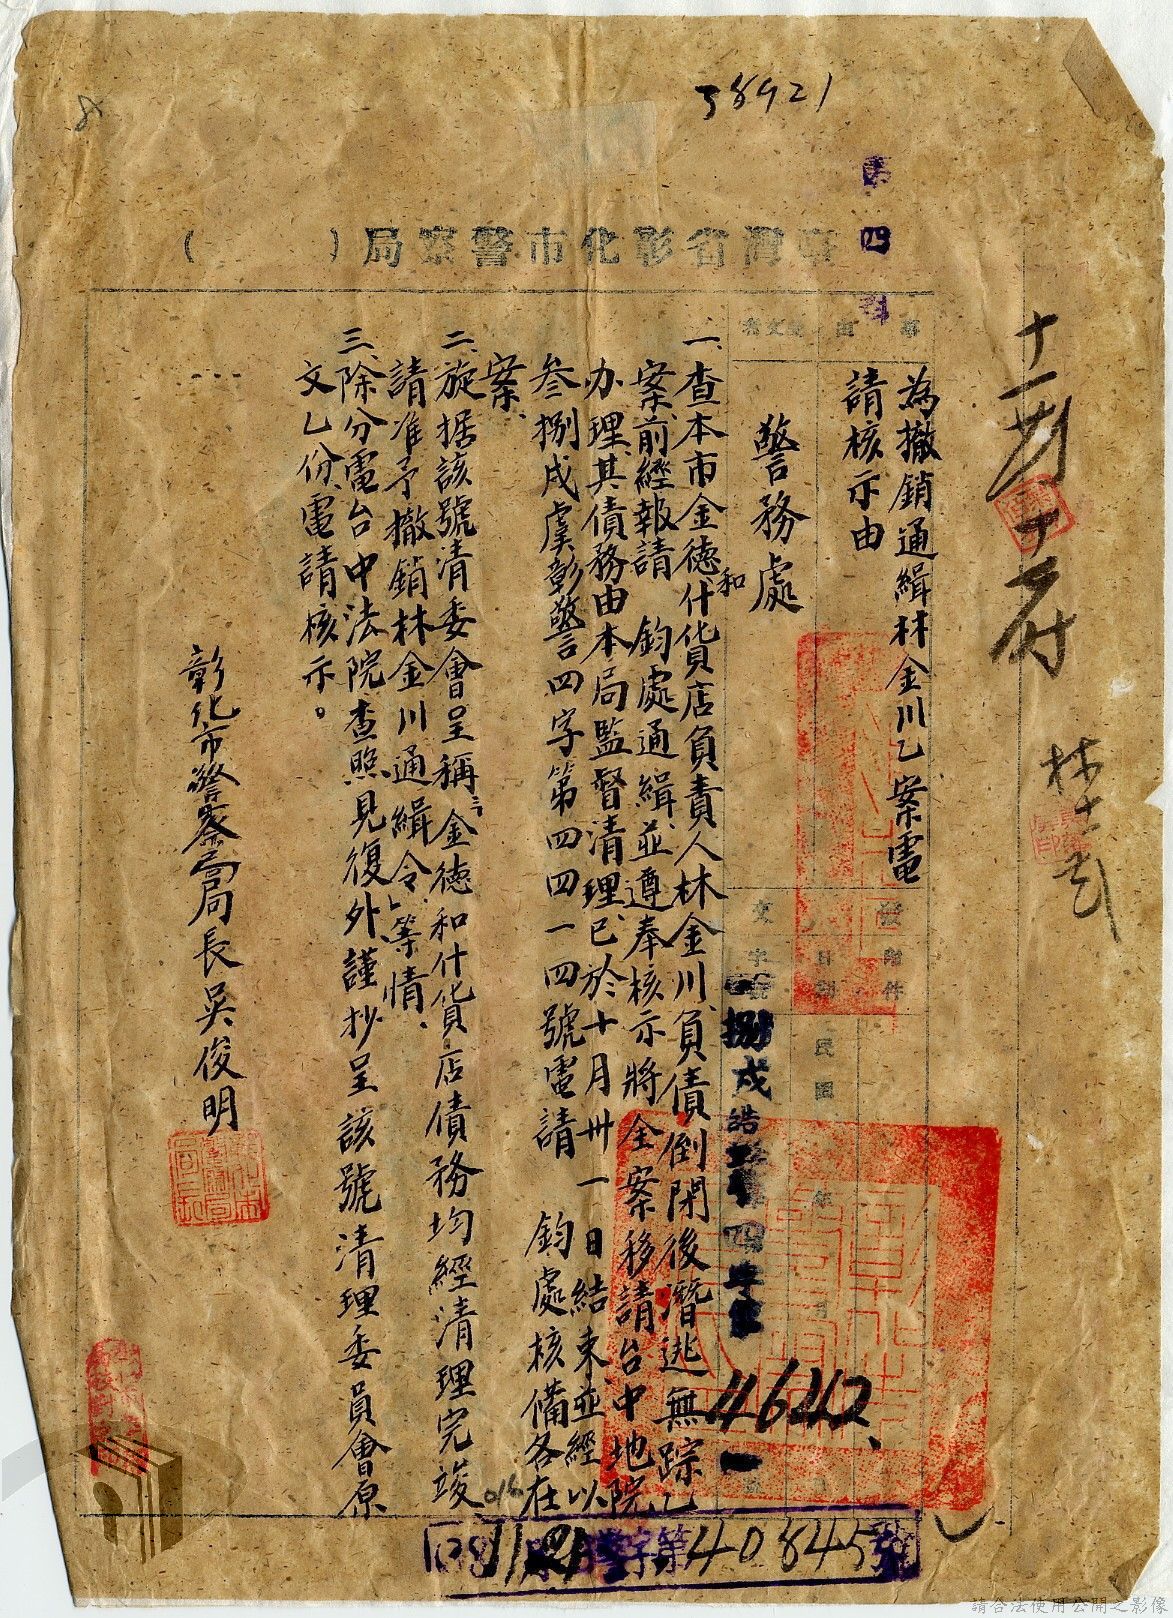 38921
臺灣省彰化市警察局（　　）
第四科
事由
為撤銷通緝林金川乙案電
請核示由
附件
警務處
捌戌皓
四字第
4642
一、查本市金德和什貨店負責人林金川、負債倒閉後潛逃無踪乙
案、前經報請　鈞處通緝、並遵奉核示將全案移請台中地院
办理、其債務由本局監督清理、已於十月卅一日結束、並經以
叁捌戌虞彰警四字第四四一四號電請　鈞處核備各在
案、
二、旋据該號清委會呈稱「金德和什貨店債務均經清理完竣
請准予撤銷林金川通緝令」等情、
三、除分電台中法院查照見復外謹抄呈該號清理委員會原
文乙份、電請核示。
彰化市警察局局長吳俊明
字第40845號
請合法使用公開之影像